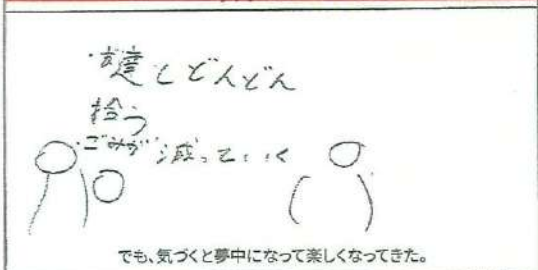 しどんどん
拾う
ごみが減っていく
でも、気づくと夢中になって楽しくなってきた。